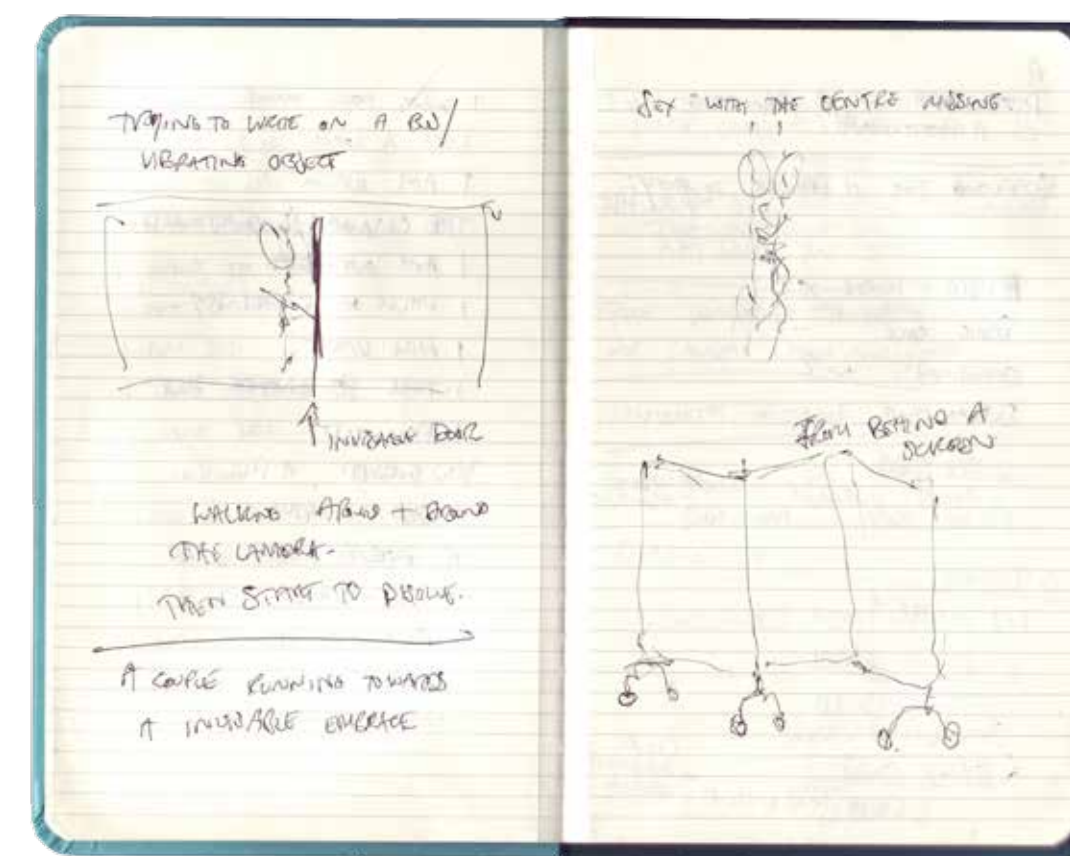 TRYING TO WRITE ON A BUS/
VIBRATING OBJECT
INVISABLE DOOR
WALKING AROUND + AROUND
THE CAMERA -
THEN START TO DISOLVE.
A COUPLE RUNNING TOWARDS
A INVISABLE EMBRACE
SEX WITH THE CENTRE MISSING.
FROM BEHIND A
SCREEN